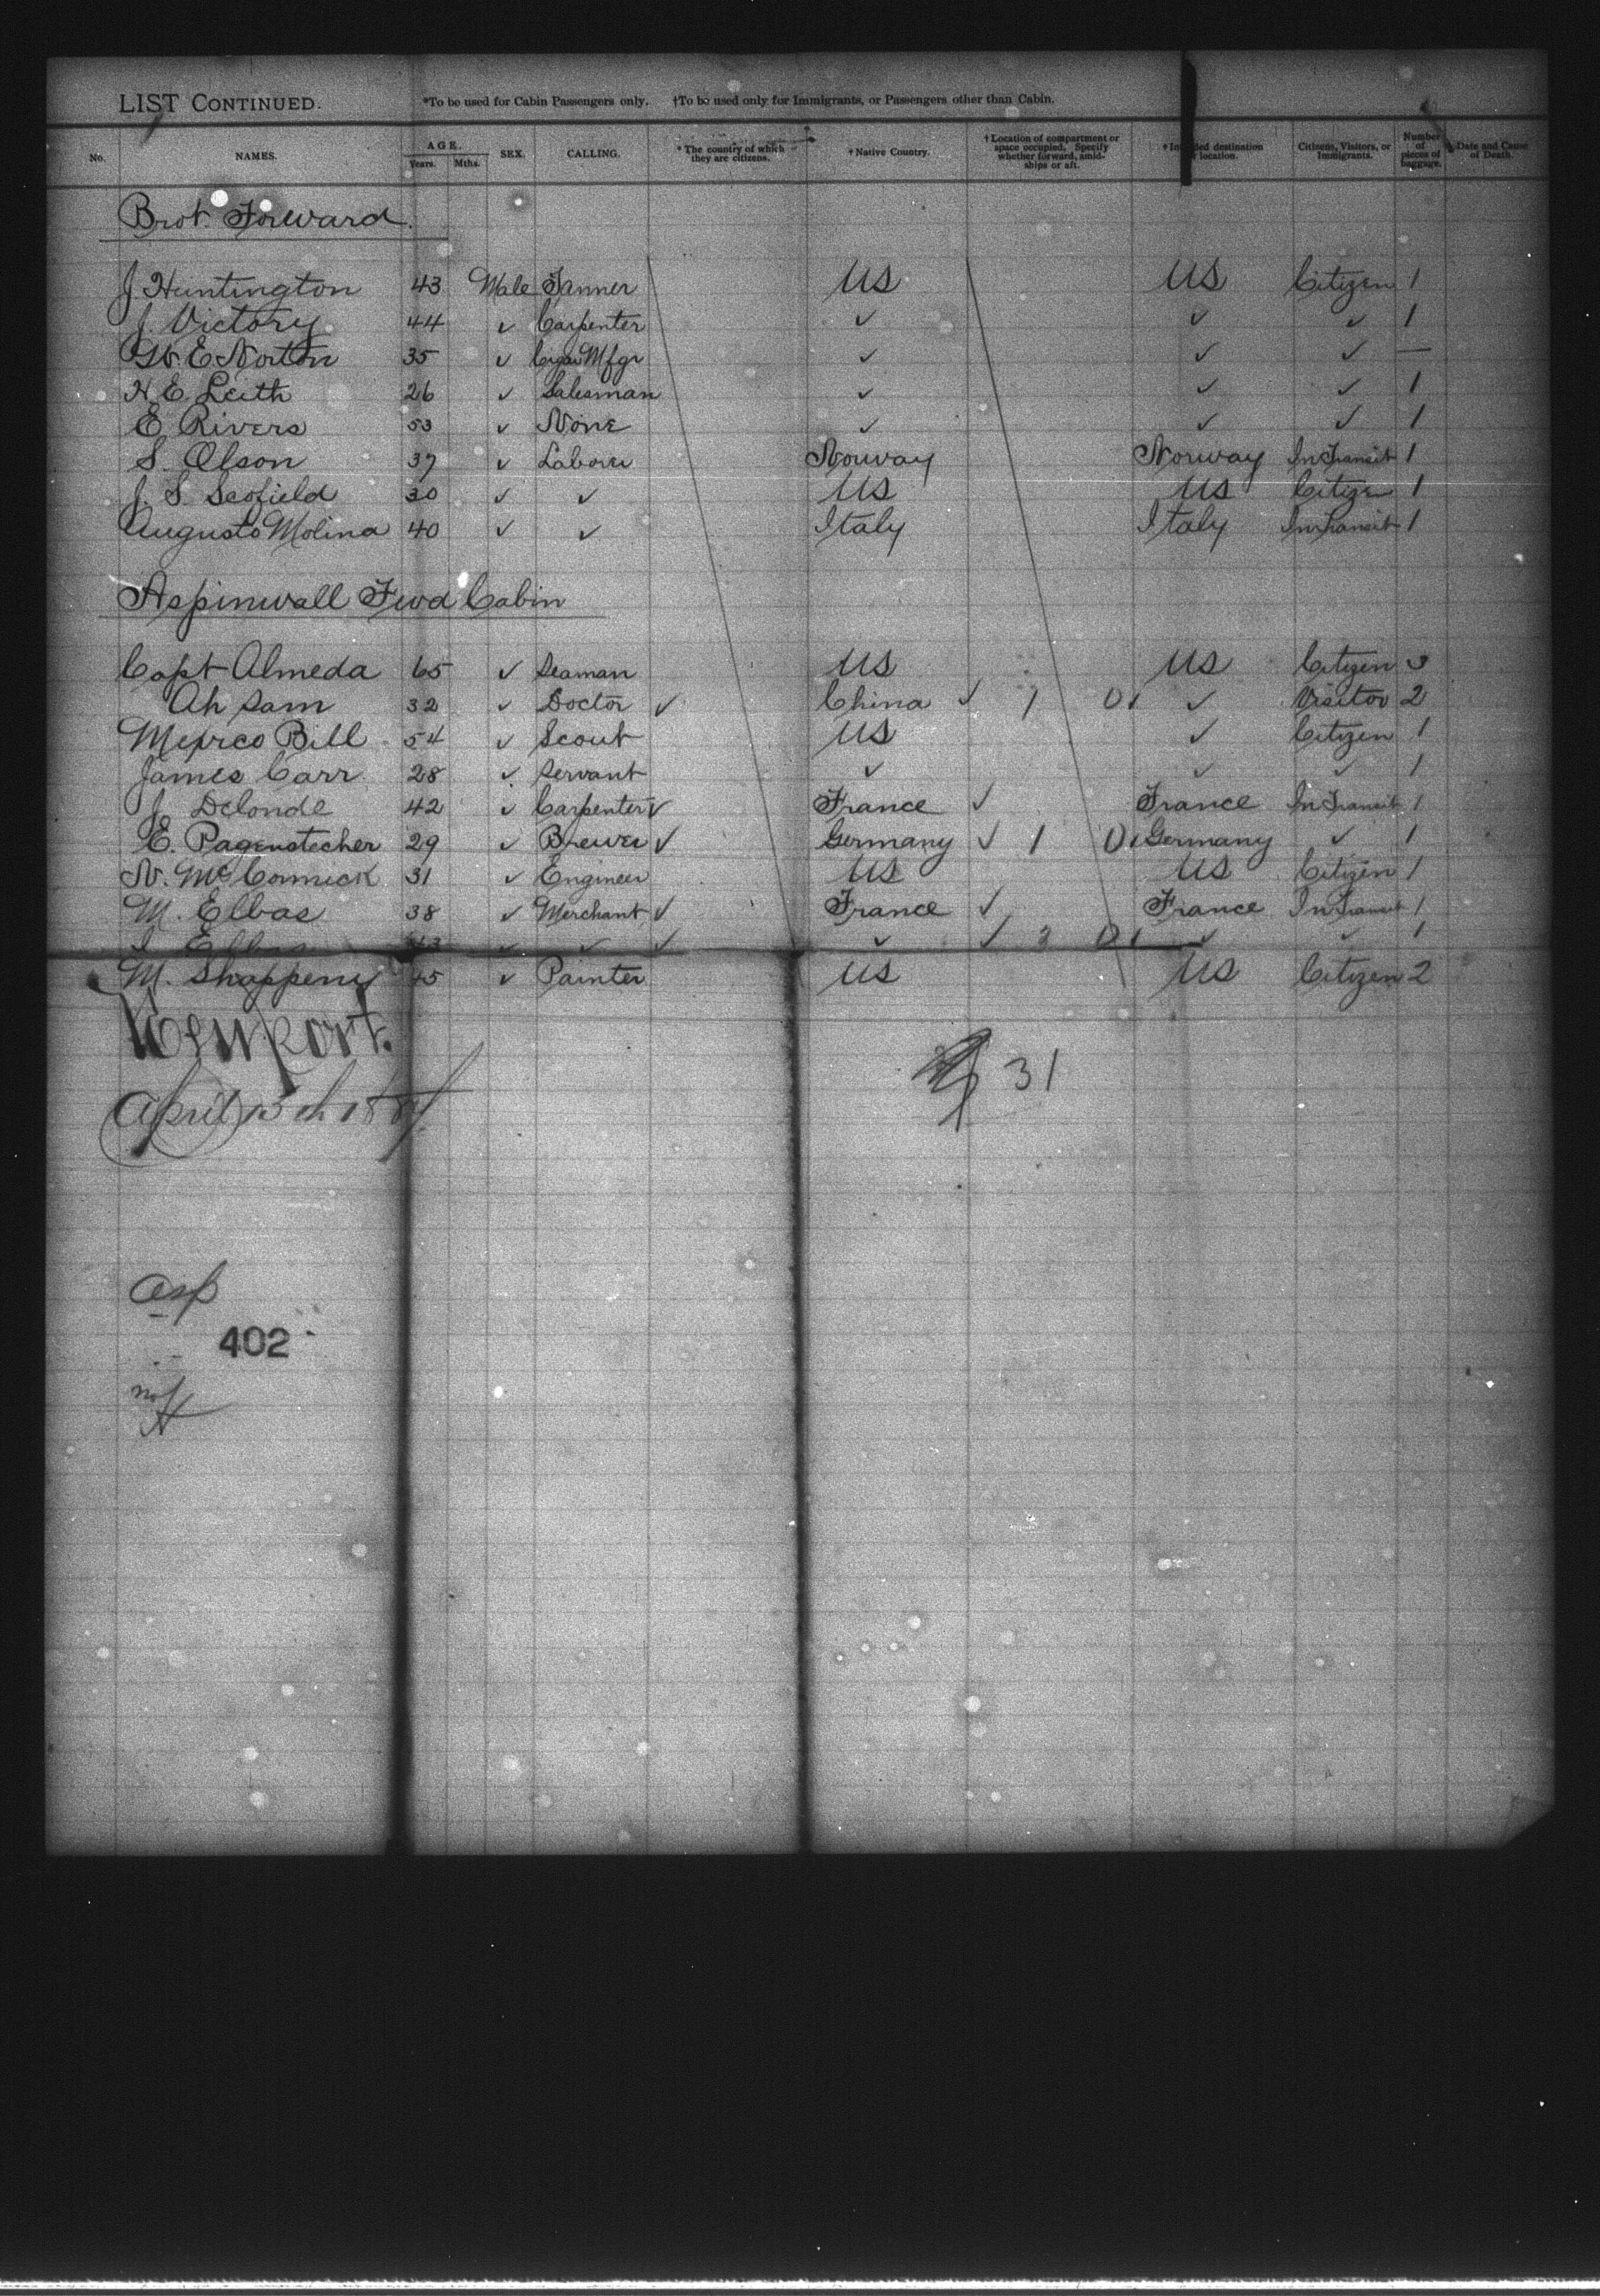 LIST CONTINUED. *To be used for Cabin Passengers only. †To be used only for Immigrants, or Passengers other than Cabin.
No. NAMES. AGE. Years. Mths. SEX. CALLING. *The country of which they are citizens. †Native Country. †Location of compartment or space occupied. Specify whether forward, amidships or aft. destination location. Citizens, Visitors, or Immigrants. Number of pieces of baggage. Date and Cause of Death.
Brot. Forward.
J Huntington 43 Male Tanner US US Citizen 1
J. Victory 44 ✓ Carpenter ✓ ✓ ✓ 1
W. E. Norton 35 ✓ Cigar Mfgr ✓ ✓ ✓ —
H E. Leith 26 ✓ Salesman ✓ ✓ ✓ 1
E. Rivers 53 ✓ None ✓ ✓ ✓ 1
S. Olson 37 ✓ Laborer Norway Norway In Transit 1
J. S. Scofield 30 ✓ ✓ US US Citizen 1
Augusto Molina 40 ✓ ✓ Italy Italy In Transit 1
Aspinwall Fwd Cabin
Capt Almeda 65 ✓ Seaman US US Citizen 3
Ah Sam 32 ✓ Doctor ✓ China ✓ 1 ✓ Visitor 2
Mexico Bill 54 ✓ Scout US ✓ Citizen 1
James Carr 28 ✓ Servant ✓ ✓ ✓ 1
J. Delonde 42 ✓ Carpenter ✓ France ✓ France In Transit 1
E. Pagenstecher 29 ✓ Brewer ✓ Germany ✓ 1 Germany ✓ 1
N. McCormick 31 ✓ Engineer US US Citizen 1
M. Elbas 38 ✓ Merchant ✓ France ✓ France In Transit 1
✓ ✓ ✓ ✓ ✓ ✓ ✓ 1
M. 45 ✓ Painter US US Citizen 2
Newport.
April 13th 1887
31
asp
402